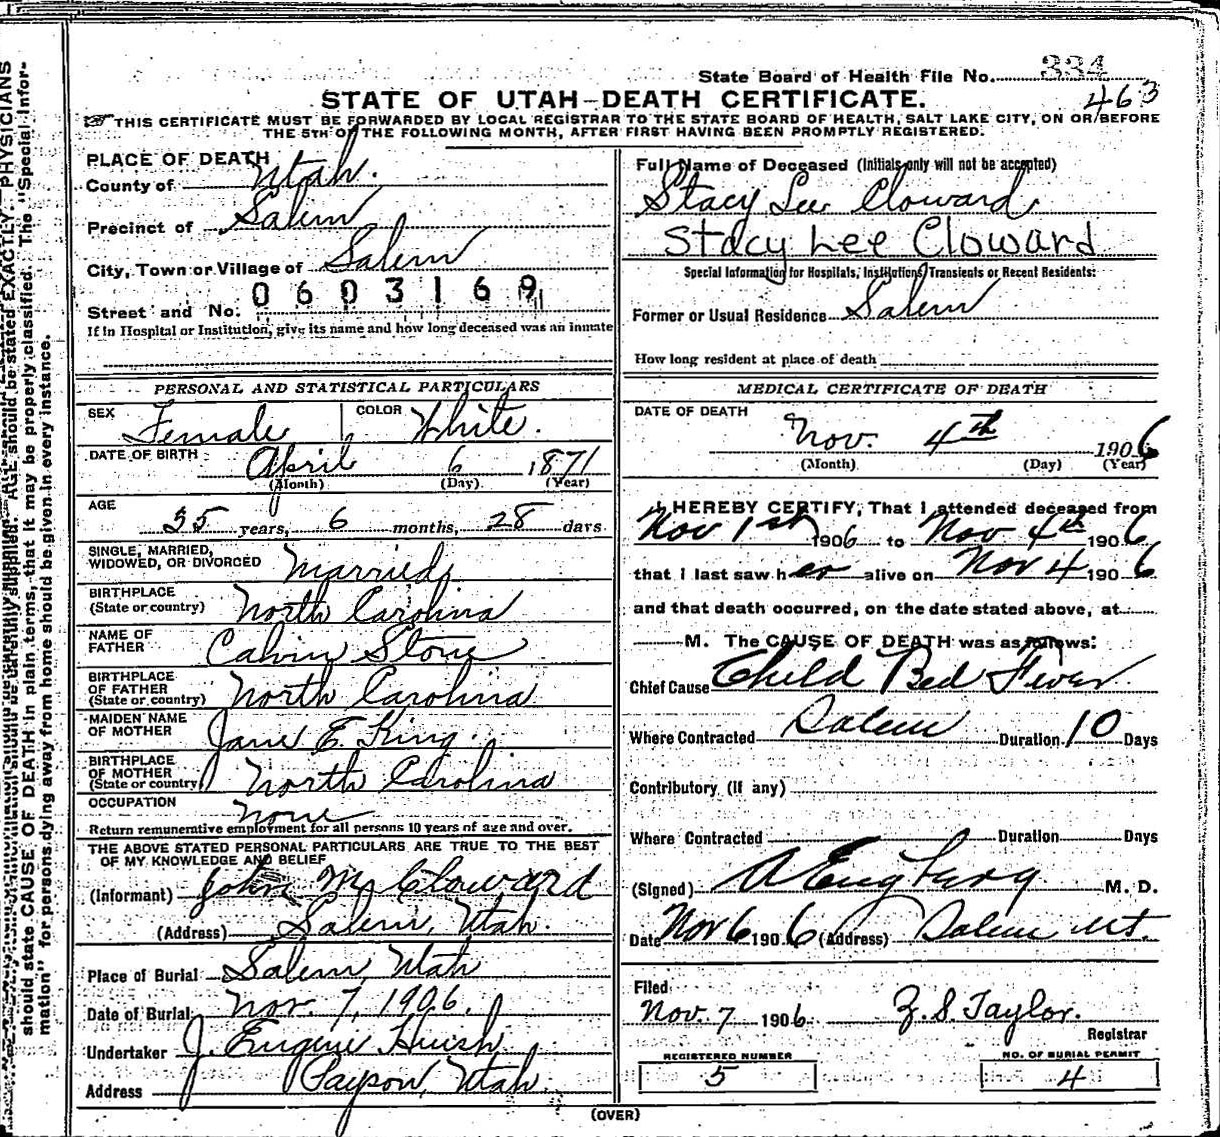 State Board of Health File No. 334
463
STATE OF UTAH-DEATH CERTIFICATE.
THIS CERTIFICATE MUST BE FORWARDED BY LOCAL REGISTRAR TO THE STATE BOARD OF HEALTH, SALT LAKE CITY, ON OR BEFORE
THE 5TH OF THE FOLLOWING MONTH, AFTER FIRST HAVING BEEN PROMPTLY REGISTERED.
PLACE OF DEATH
County of Utah.
Precinct of Salem
City, Town or Village of Salem
Street and No. 0603169
If in Hospital or Institution, give its name and how long deceased was an inmate
Full Name of Deceased (Initials only will not be accepted)
Stacy Lee Cloward
Stacy Lee Cloward
Special Information for Hospitals, Institutions, Transients or Recent Residents:
Former or Usual Residence Salem
How long resident at place of death
PERSONAL AND STATISTICAL PARTICULARS
SEX Female COLOR White.
DATE OF BIRTH April 6 1871
(Month) (Day) (Year)
AGE 35 years, 6 months, 28 days
SINGLE, MARRIED,
WIDOWED, OR DIVORCED Married
BIRTHPLACE
(State or country) North Carolina
NAME OF
FATHER Calvin Stone
BIRTHPLACE
OF FATHER
(State or country) North Carolina
MAIDEN NAME
OF MOTHER Jane E. King.
BIRTHPLACE
OF MOTHER
(State or country) North Carolina
OCCUPATION None
Return remunerative employment for all persons 10 years of age and over.
THE ABOVE STATED PERSONAL PARTICULARS ARE TRUE TO THE BEST
OF MY KNOWLEDGE AND BELIEF
(Informant) John M. Cloward
(Address) Salem, Utah.
Place of Burial Salem, Utah
Date of Burial Nov. 7, 1906.
Undertaker J. Eugene Huish
Address Payson, Utah.
MEDICAL CERTIFICATE OF DEATH
DATE OF DEATH
Nov. 4th 1906
(Month) (Day) (Year)
I HEREBY CERTIFY, That I attended deceased from
Nov 1st 1906 to Nov 4th 1906
that I last saw her alive on Nov 4 1906
and that death occurred, on the date stated above, at
M. The CAUSE OF DEATH was as follows:
Chief Cause Child Bed Fever
Where Contracted Salem Duration 10 Days
Contributory (if any)
Where Contracted Duration Days
(Signed) A Engberg M. D.
Date Nov 6 1906 (Address) Salem Ut.
Filed
Nov. 7 1906 Z. S. Taylor.
Registrar
REGISTERED NUMBER
5
NO. OF BURIAL PERMIT
4
(OVER)
AGE should be stated EXACTLY. PHYSICIANS
should state CAUSE OF DEATH in plain terms, that it may be properly classified. The "Special Infor-
mation" for persons dying away from home should be given in every instance.